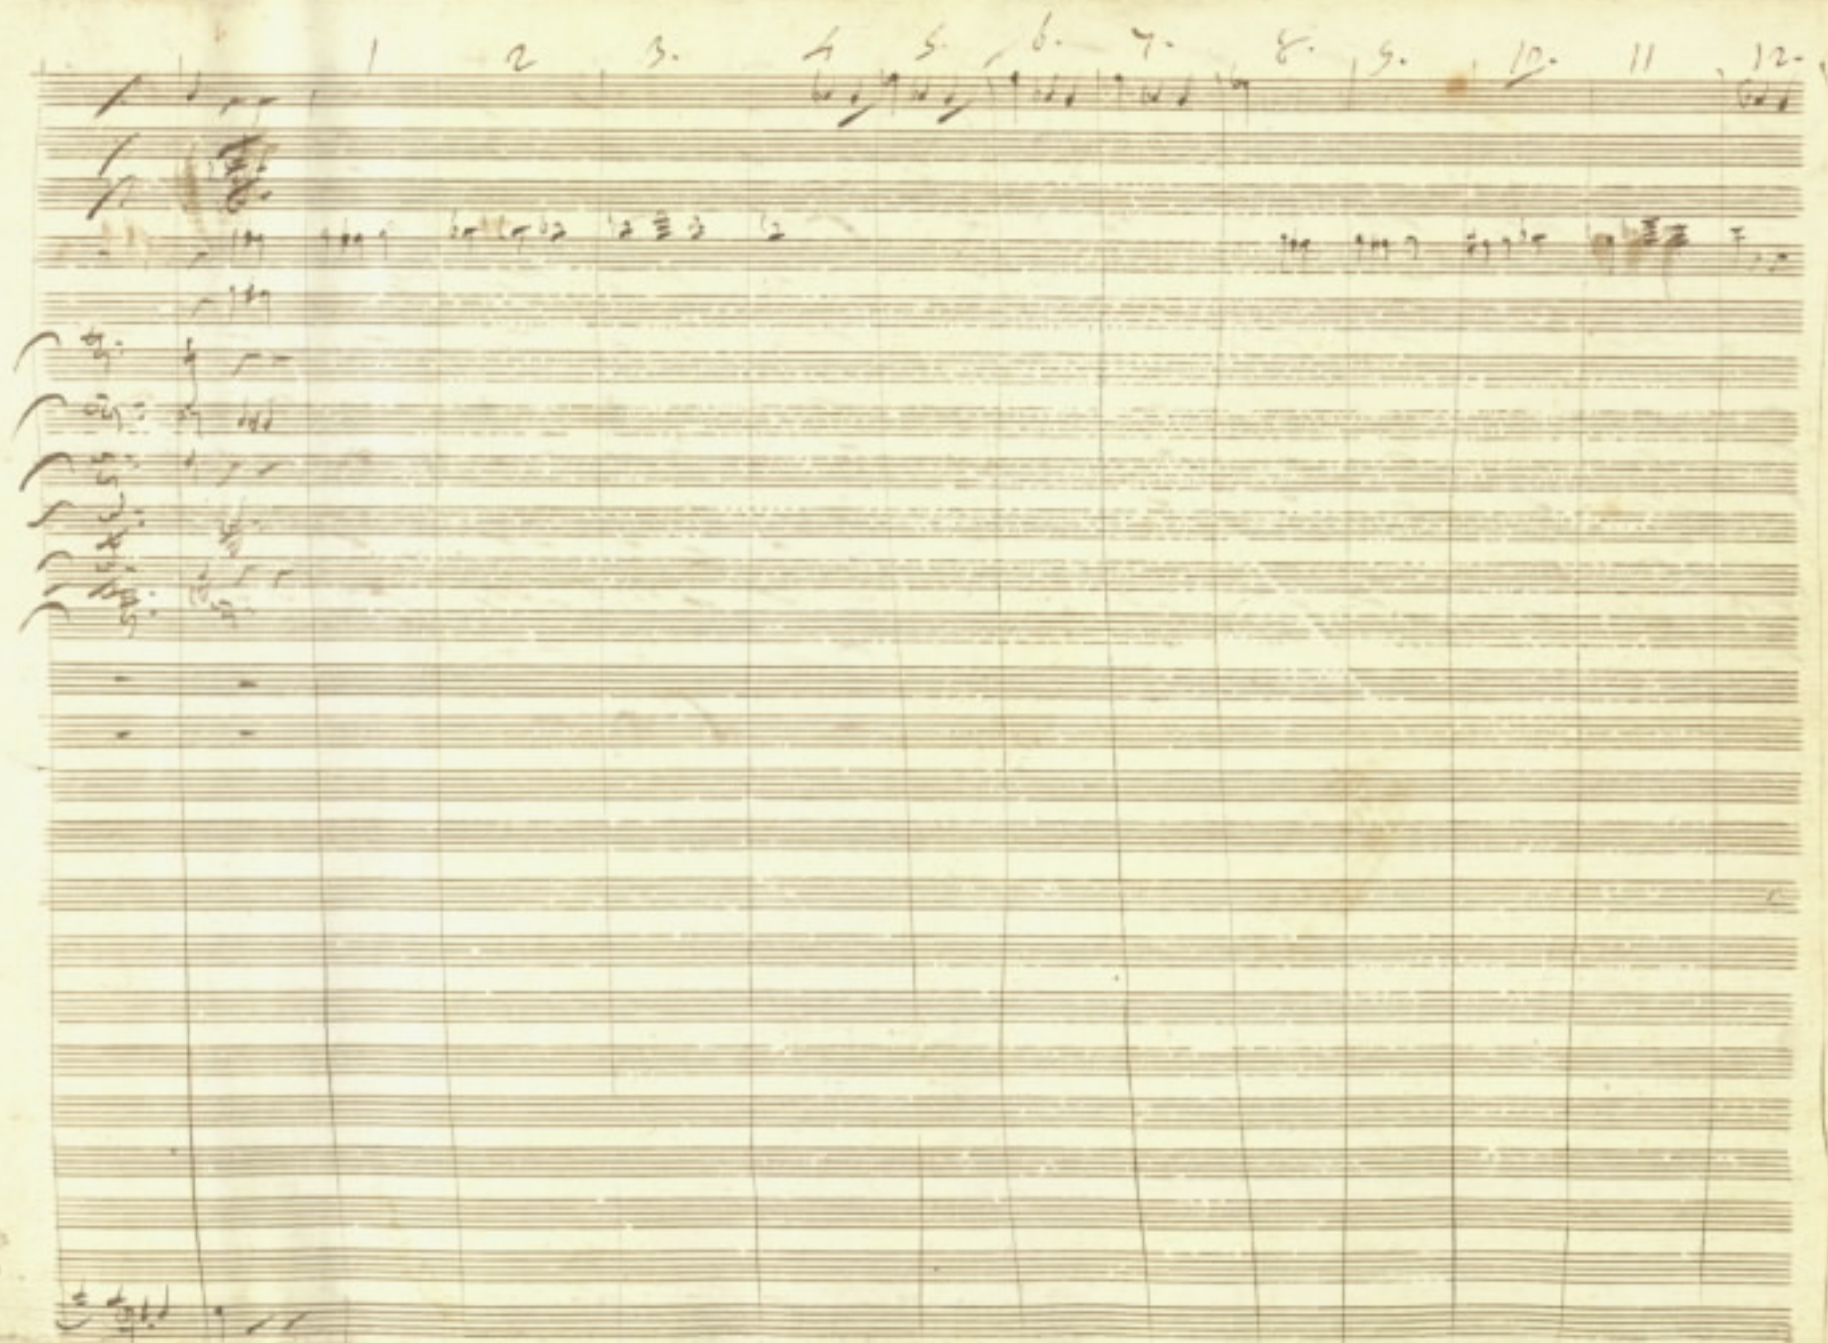 1 2 3. 4 5. 6. 7. 8. 9. 10. 11 12.